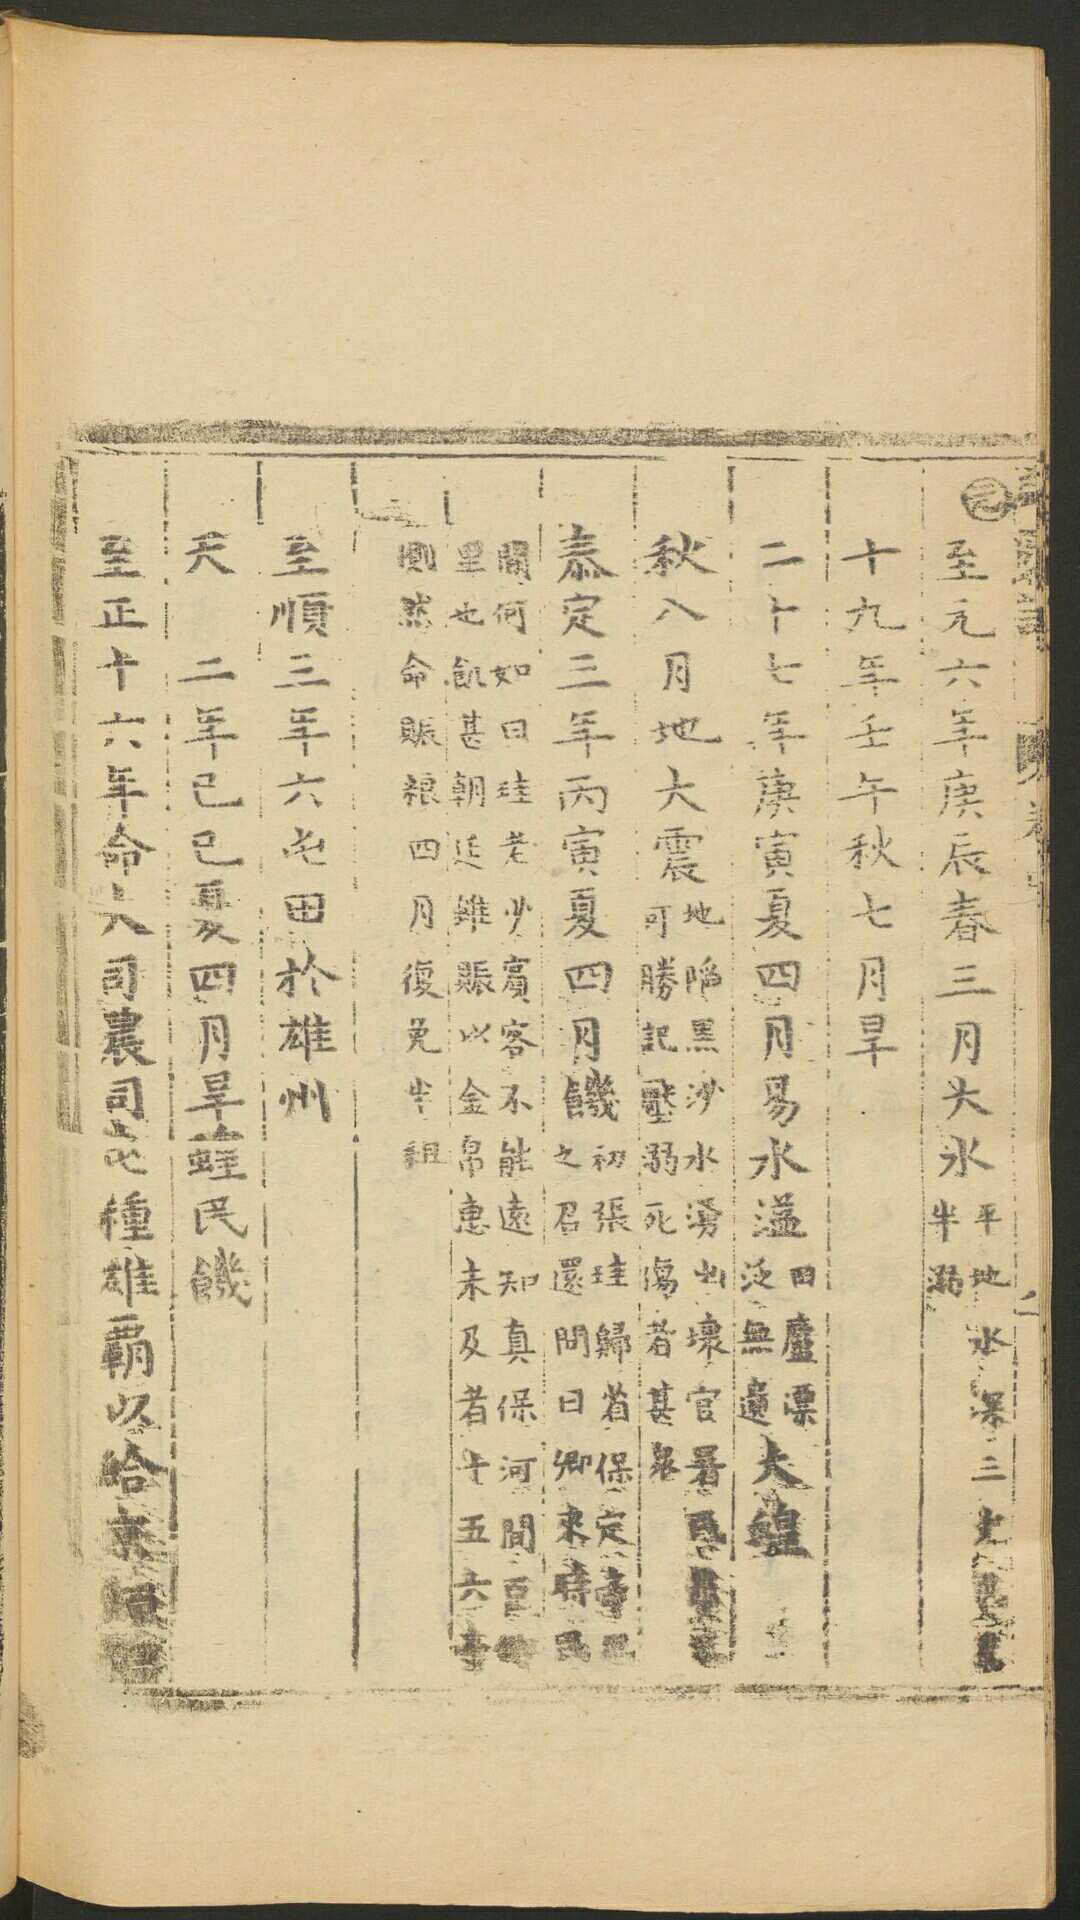 元
至元六年庚辰春三月大水平地水深三丈
半溺
十九年壬午秋七月旱
二十七年庚寅夏四月易水溢田廬漂
泛無遺大蝗
秋八月地大震地陷黑沙水湧出壞官署
可勝記壓溺死傷者甚衆
泰定三年丙寅夏四月饑初張珪歸省保定
之召還問曰卿來時民
閒何如曰珪老少賓客不能遠知真保河間
里也飢甚朝廷雖賑以金帛惠未及者十五六
惻然命賑粮四月復免半租
至順三年六屯田於雄州
天 二年己巳夏四月旱蝗民饑
至正十六年命大司農司屯種雄覇以哈